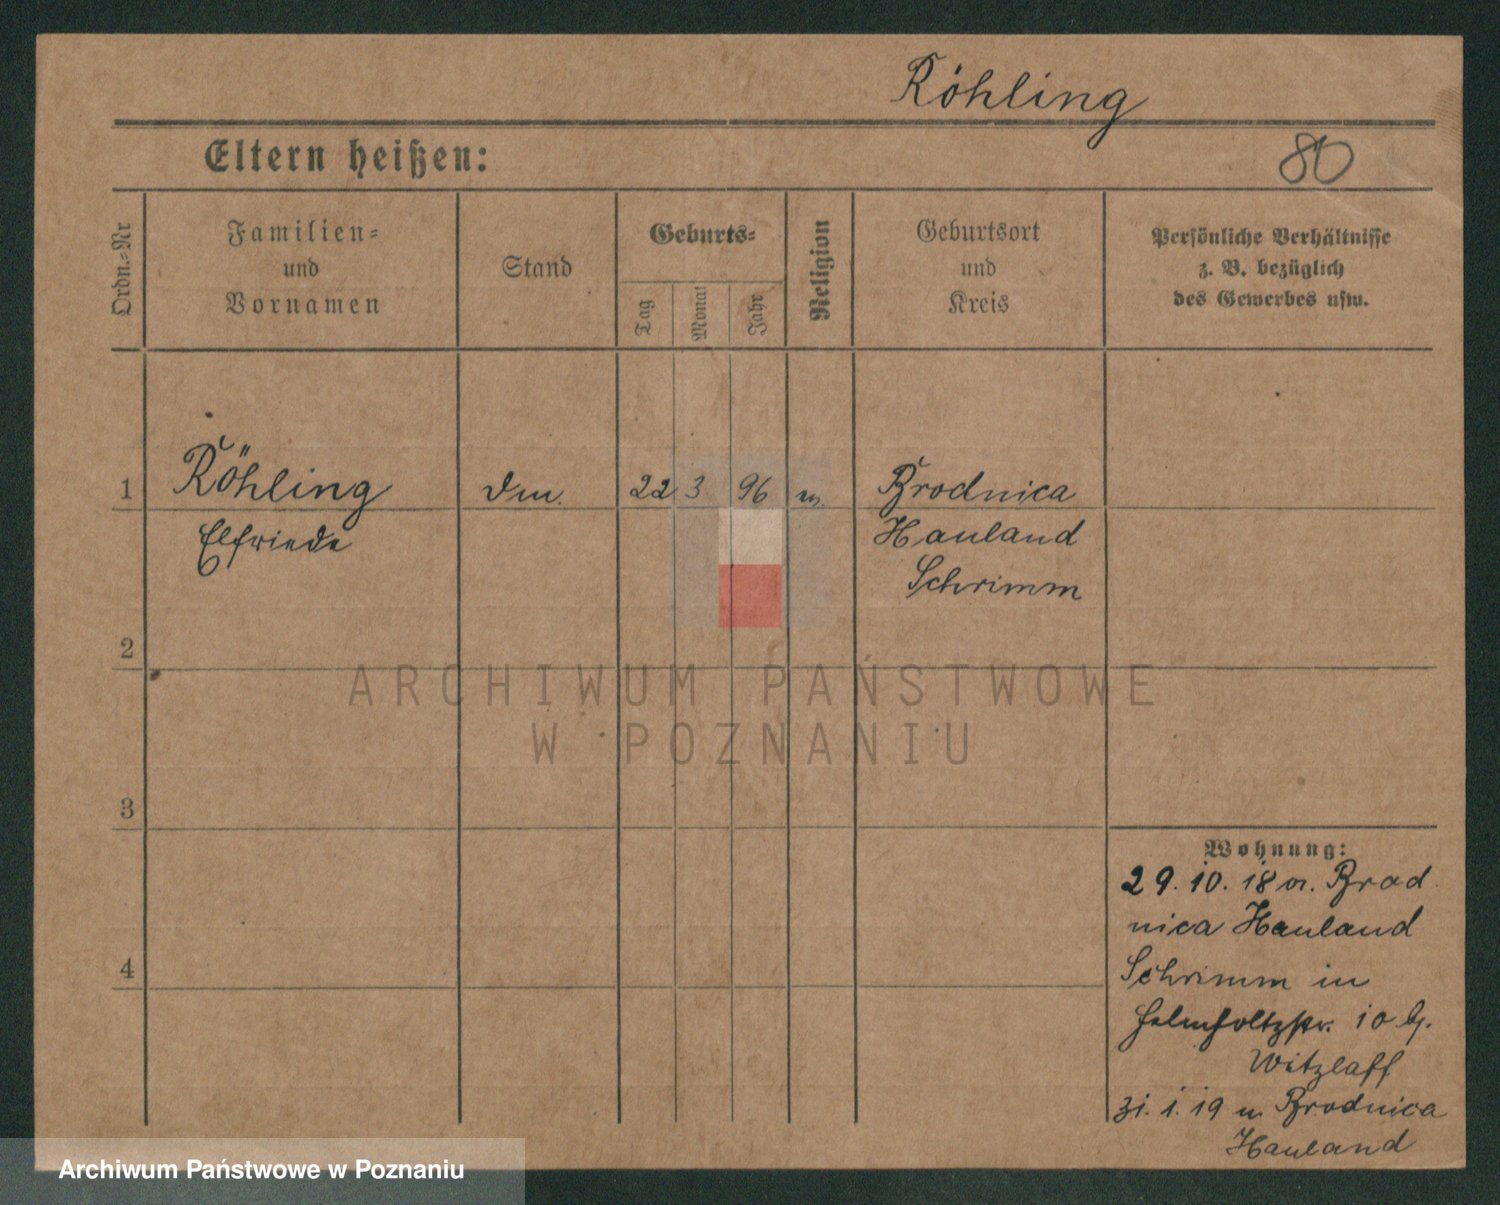 Röhling
Eltern heißen:
80
Ordn.=Nr
Familien=
und
Vornamen
Stand
Geburts=
Tag
Monat
Jahr
Religion
Geburtsort
und
Kreis
Persönliche Verhältnisse
z. B. bezüglich
des Gewerbes usw.
1
Röhling
Elfriede
22
3
96
Brodnica
Hauland
Schrimm
2
ARCHIWUM PAŃSTWOWE
W POZNANIU
3
4
Wohnung:
29. 10. 18 v. Brod
nica Hauland
Schrimm in
Helmholtzstr. 10 b.
Witzlaff
31. 1. 19 n Brodnica
Hauland
Archiwum Państwowe w Poznaniu